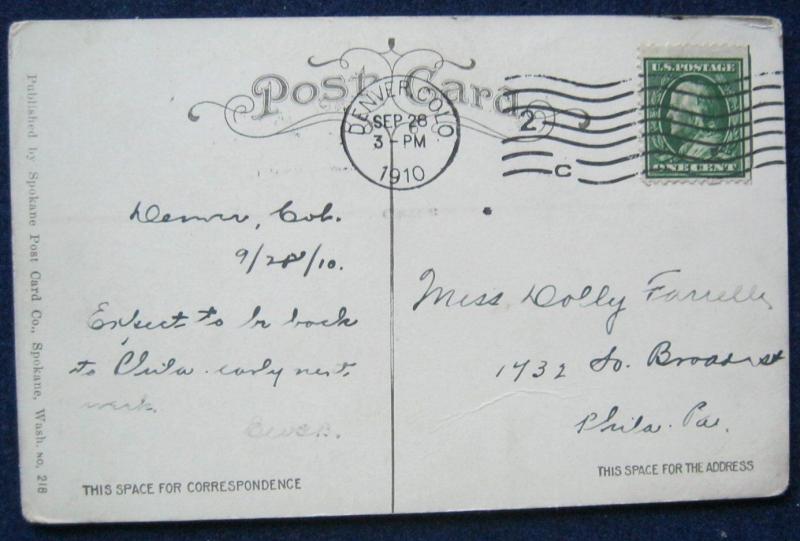 Published by Spokane Post Card Co., Spokane, Wash. NO. 218
Post Card
DENVER, COLO
SEP 28
3-PM
1910
2
C
U.S. POSTAGE
ONE CENT
Denver, Col.
9/28/10.
Expect to be back
to Phila. early next
week.
THIS SPACE FOR CORRESPONDENCE
Miss Dolly Farrelly
1732 So. Broad st
Phila. Pa.
THIS SPACE FOR THE ADDRESS